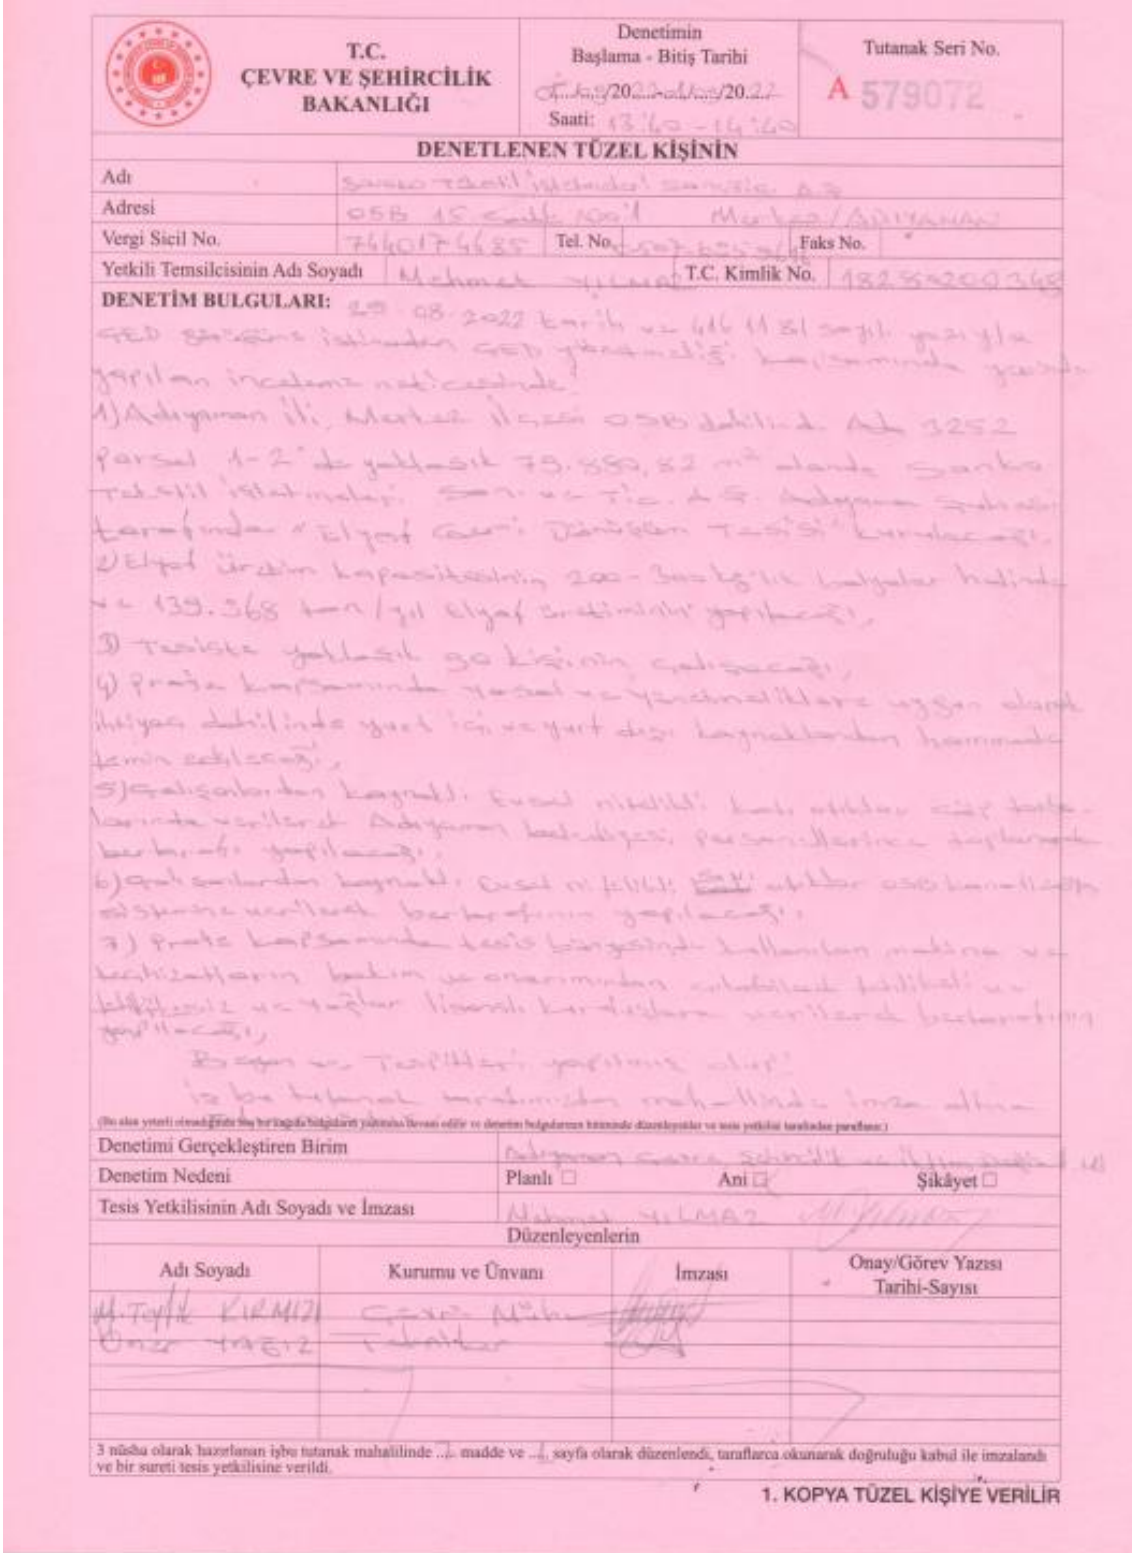 T.C.
ÇEVRE VE ŞEHİRCİLİK
BAKANLIĞI
Denetimin
Başlama - Bitiş Tarihi
/20 /20.22
Saati: 13:40 - 14:40
Tutanak Seri No.
A 579072
DENETLENEN TÜZEL KİŞİNİN
Adı Sanko Tekstil İşletmeleri A.Ş
Adresi OSB 15. Cadde No:1 Merkez/ADIYAMAN
Vergi Sicil No. Tel. No. Faks No.
Yetkili Temsilcisinin Adı Soyadı Mehmet YILMAZ T.C. Kimlik No.
DENETİM BULGULARI: 29.08.2022 tarih ve sayılı yazıyla
ÇED istinaden ÇED yönetmeliği kapsamında
yapılan inceleme neticesinde
1) Adıyaman İli, Merkez İlçesi OSB dahilinde Ada 3252
Parsel 1-2'de yaklaşık 79.880,82 m² alanda Sanko
Tekstil İşletmeleri San. ve Tic. A.Ş. Adıyaman Şubesi
tarafından "Elyaf Geri Dönüşüm Tesisi" kurulacağı,
2) Elyaf Üretim kapasitesinin 200-300 kg'lık balyalar halinde
ve 139.968 ton/yıl elyaf üretiminin yapılacağı,
3) Tesiste yaklaşık 90 kişinin çalışacağı,
4) Proje kapsamında yasal ve yönetmeliklere uygun olarak
ihtiyaç dahilinde yurt içi ve yurt dışı kaynaklardan hammadde
temin edileceği,
5) Çalışanlardan kaynaklı Evsel nitelikli katı atıklar çöp
verilerek Adıyaman belediyesi personellerince toplanarak
bertarafı yapılacağı,
6) Çalışanlardan kaynaklı Evsel nitelikli atıklar OSB kanalizasyon
sistemine verilerek bertarafının yapılacağı,
7) Proje kapsamında tesis bünyesinde kullanılan makina ve
teçhizatların bakım ve onarımından tehlikeli ve
tehlikesiz ve yağlar lisanslı kuruluşlara verilerek bertarafının
yapılacağı,
Beyan ve Tespitleri yapılmış olup
iş bu tutanak tarafımızdan mahallinde imza altına
(Bu alan yeterli olmadığında boş bir kağıda bulguların yazımına devam edilir ve denetim bulgularının bitiminde düzenleyenler ve tesis yetkilisi tarafından paraflanır.)
Denetimi Gerçekleştiren Birim Adıyaman Çevre Şehircilik ve İklim
Denetim Nedeni Planlı Ani Şikâyet
Tesis Yetkilisinin Adı Soyadı ve İmzası Mehmet YILMAZ
Düzenleyenlerin
Adı Soyadı Kurumu ve Ünvanı İmzası Onay/Görev Yazısı
Tarihi-Sayısı
M. Tevfik KIRMIZI Çevre Müh.
YAĞIZ Tekniker
3 nüsha olarak hazırlanan işbu tutanak mahalinde madde ve sayfa olarak düzenlendi, taraflarca okunarak doğruluğu kabul ile imzalandı
ve bir sureti tesis yetkilisine verildi.
1. KOPYA TÜZEL KİŞİYE VERİLİR